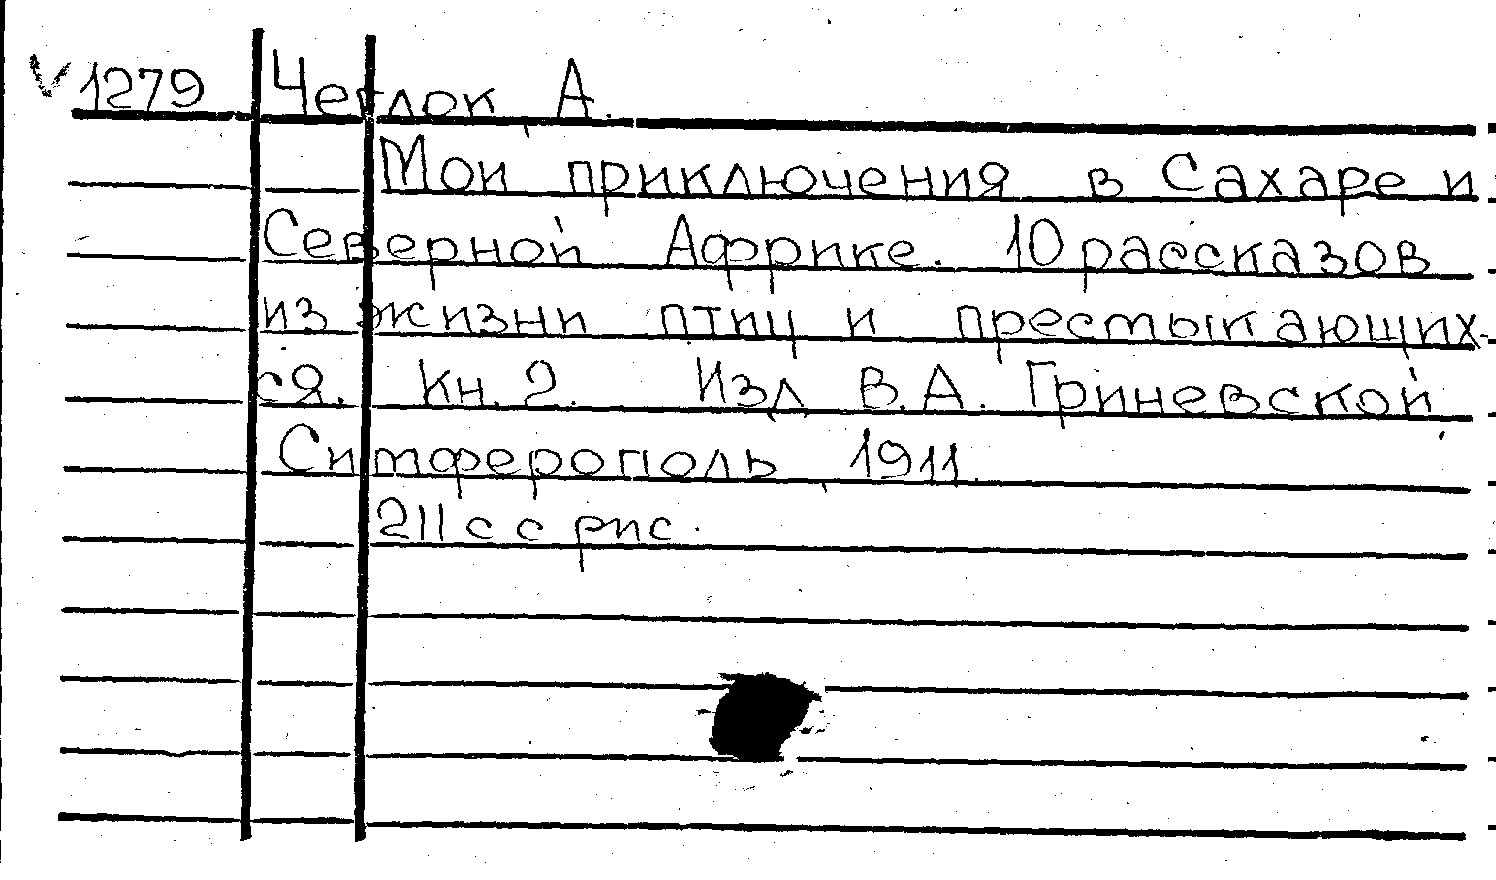 V 1279 Чеглок, А.
Мои приключения в Сахаре и
Северной Африке. 10 рассказов
из жизни птиц и престыкающих-
ся. Кн. 2. Изд. В.А. Гриневской
Симферополь, 1911.
211 с с рис.